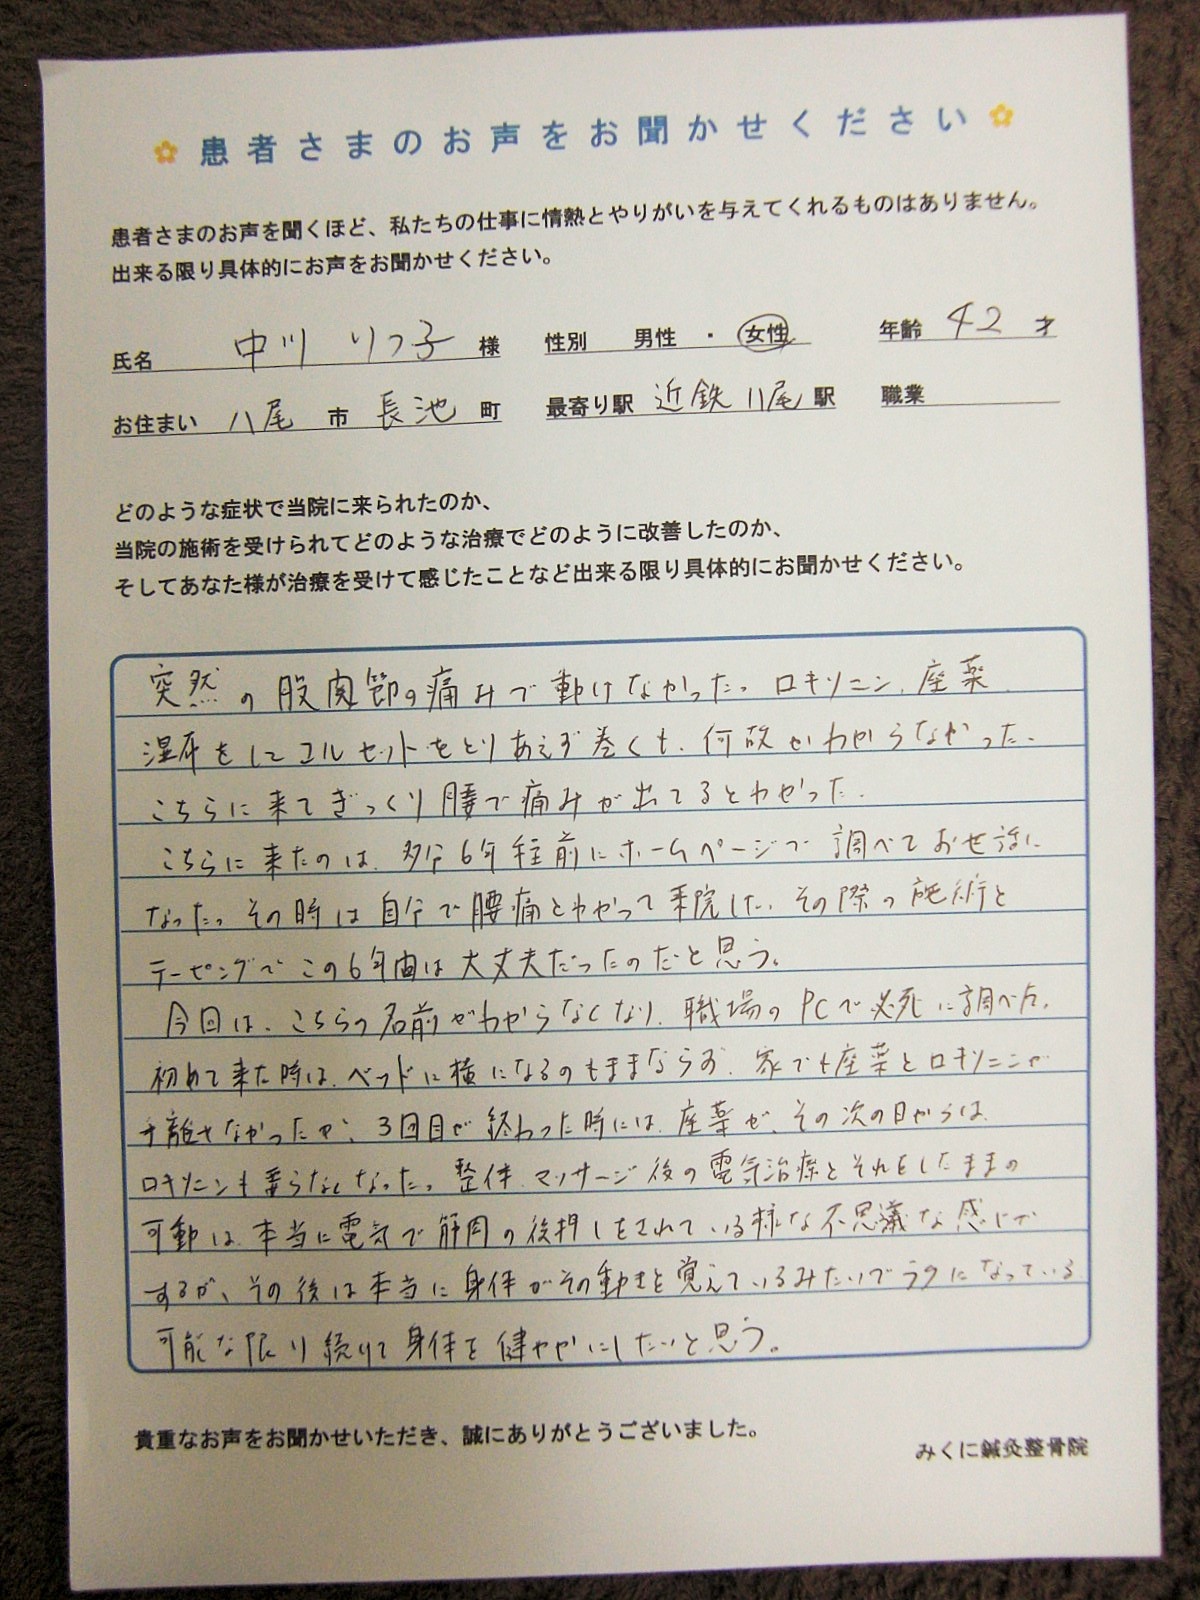 患者さまのお声をお聞かせください
患者さまのお声を聞くほど、私たちの仕事に情熱とやりがいを与えてくれるものはありません。
出来る限り具体的にお声をお聞かせください。
氏名 中川 りつ子 様 性別 男性 ・ 女性 年齢 42 才
お住まい 八尾 市 長池 町 最寄り駅 近鉄八尾 駅 職業
どのような症状で当院に来られたのか、
当院の施術を受けられてどのような治療でどのように改善したのか、
そしてあなた様が治療を受けて感じたことなど出来る限り具体的にお聞かせください。
突然の股関節の痛みで動けなかった。ロキソニン、座薬、
湿布をしてコルセットをとりあえず巻くも、何故かわからなかった。
こちらに来てぎっくり腰で痛みが出てるとわかった。
こちらに来たのは、多分6年程前にホームページで調べてお世話に
なった。その時は自分で腰痛とわかって来院した。その際の施術と
テーピングでこの6年間は大丈夫だったのだと思う。
今回は、こちらの名前がわからなくなり、職場のPCで必死に調べた。
初めて来た時は、ベッドに横になるのもままならず、家でも座薬とロキソニンが
手離せなかったが、3回目が終わった時には、座薬が、その次の日からは、
ロキソニンも要らなくなった。整体、マッサージ後の電気治療とそれをしたままの
可動は、本当に電気で筋肉の後押しをされている様な不思議な感じが
するが、その後は本当に身体がその動きを覚えているみたいでラクになっている。
可能な限り続けて身体を健やかにしたいと思う。
貴重なお声をお聞かせいただき、誠にありがとうございました。
みくに鍼灸整骨院